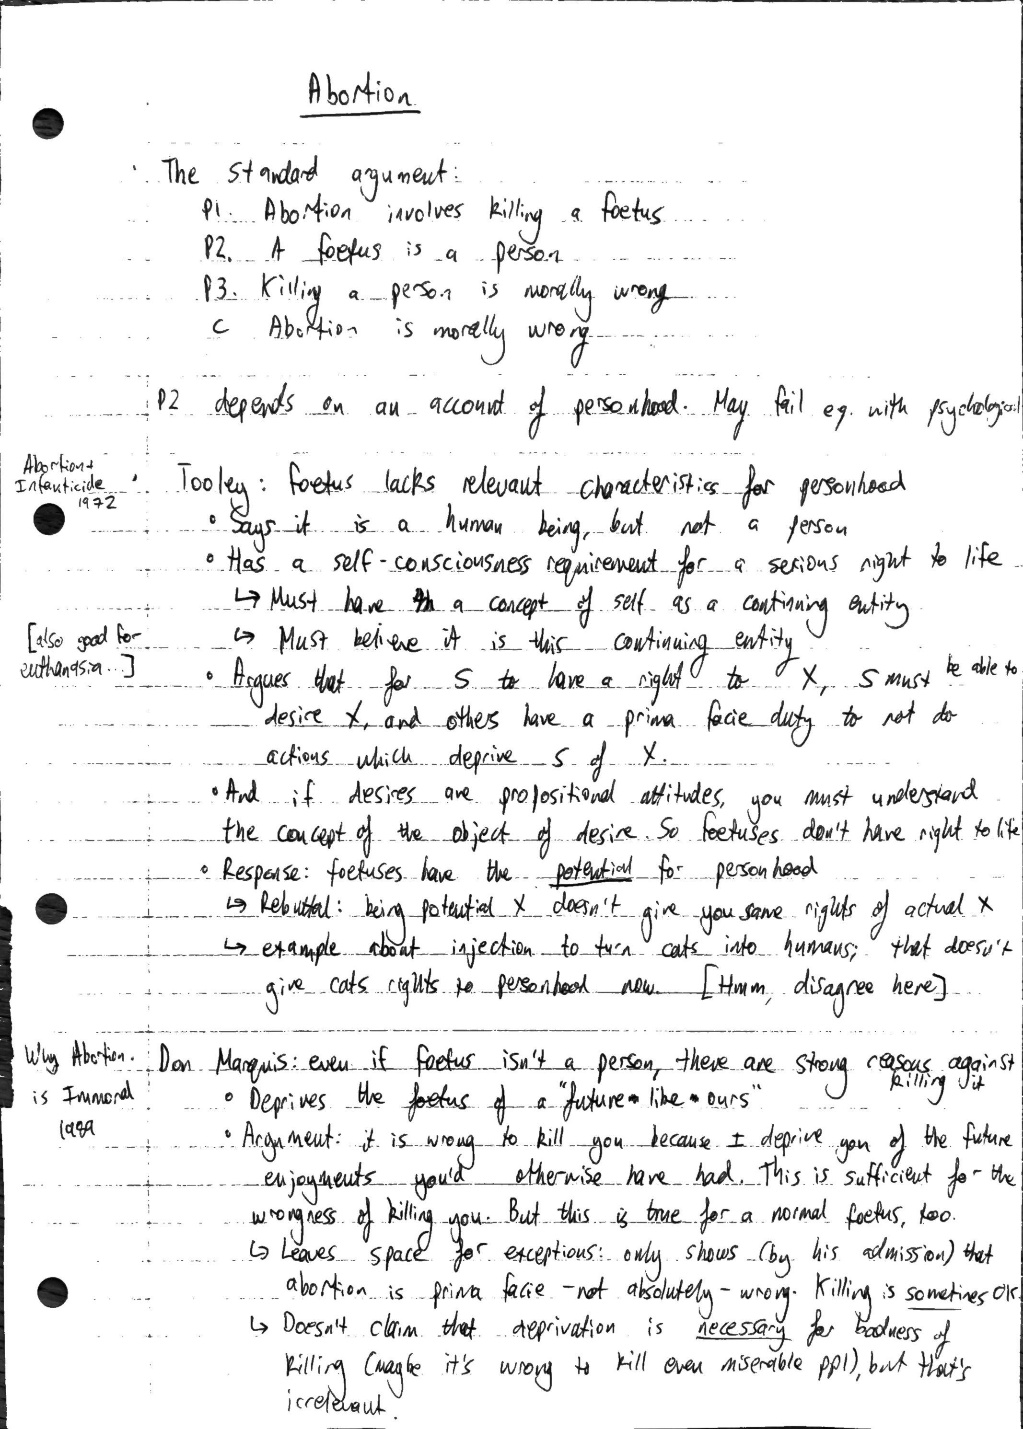 Abortion
The standard argument:
P1. Abortion involves killing a foetus
P2. A foetus is a person
P3. Killing a person is morally wrong
C Abortion is morally wrong
P2 depends on an account of personhood. May fail eg. with psychological
Abortion +
Infanticide
1972
Tooley: foetus lacks relevant characteristics for personhood
• Says it is a human being, but not a person
• Has a self-consciousness requirement for a serious right to life
↳ Must have a concept of self as a continuing entity
↳ Must believe it is this continuing entity
[also good for
euthanasia...]
• Argues that for S to have a right to X, S must be able to
desire X, and others have a prima facie duty to not do
actions which deprive S of X.
• And if desires are propositional attitudes, you must understand
the concept of the object of desire. So foetuses don't have right to life
• Response: foetuses have the potential for personhood
↳ Rebuttal: being potential X doesn't give you same rights of actual X
↳ example about injection to turn cats into humans; that doesn't
give cats rights to personhood now. [Hmm, disagree here]
Why Abortion
is Immoral
1989
Don Marquis: even if foetus isn't a person, there are strong reasons against
killing it
• Deprives the foetus of a "future-like-ours"
• Argument: it is wrong to kill you because I deprive you of the future
enjoyments you'd otherwise have had. This is sufficient for the
wrongness of killing you. But this is true for a normal foetus, too.
↳ Leaves space for exceptions: only shows (by his admission) that
abortion is prima facie - not absolutely - wrong. Killing is sometimes OK.
↳ Doesn't claim that deprivation is necessary for badness of
killing (maybe it's wrong to kill even miserable ppl), but that's
irrelevant.